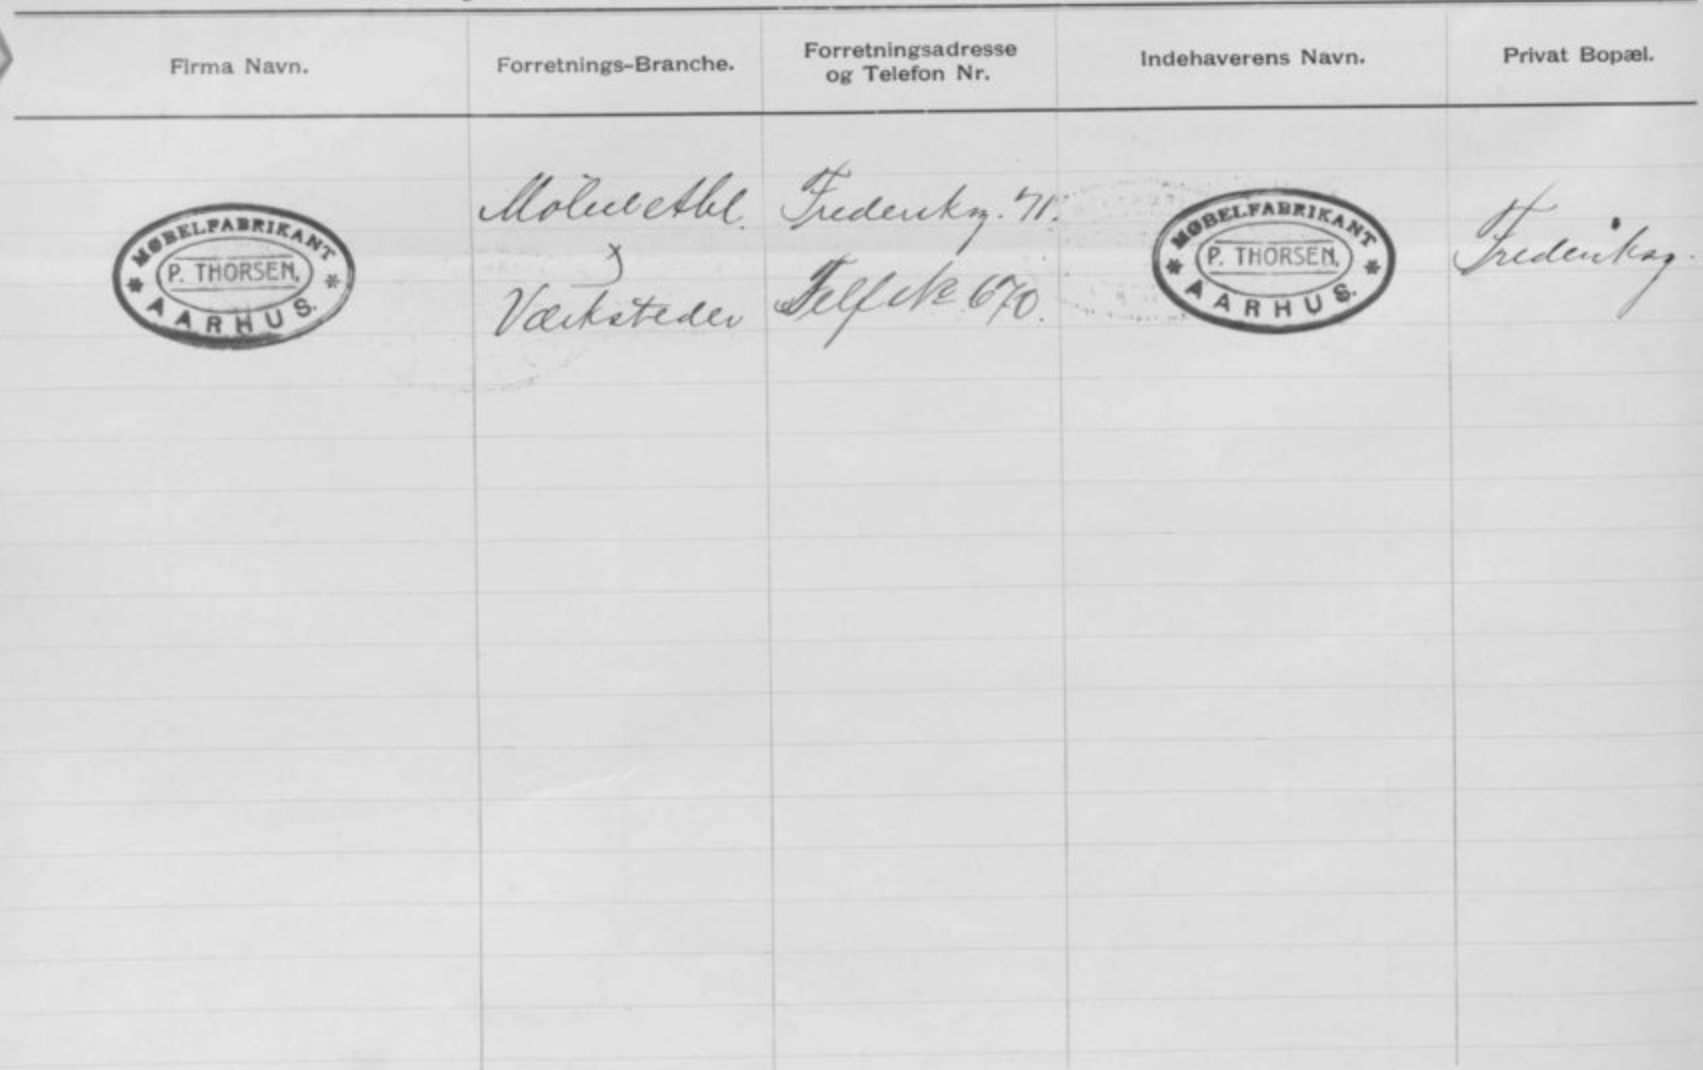 Firma Navn.
Forretnings-Branche.
Forretningsadresse
og Telefon Nr.
Indehaverens Navn.
Privat Bopæl.
MØBELFABRIKANT
P. THORSEN,
AARHUS.
Møbeletbl.
Værksteder
Frederiksg. 71.
Telf № 670.
MØBELFABRIKANT
P. THORSEN,
AARHUS.
Frederiksg.